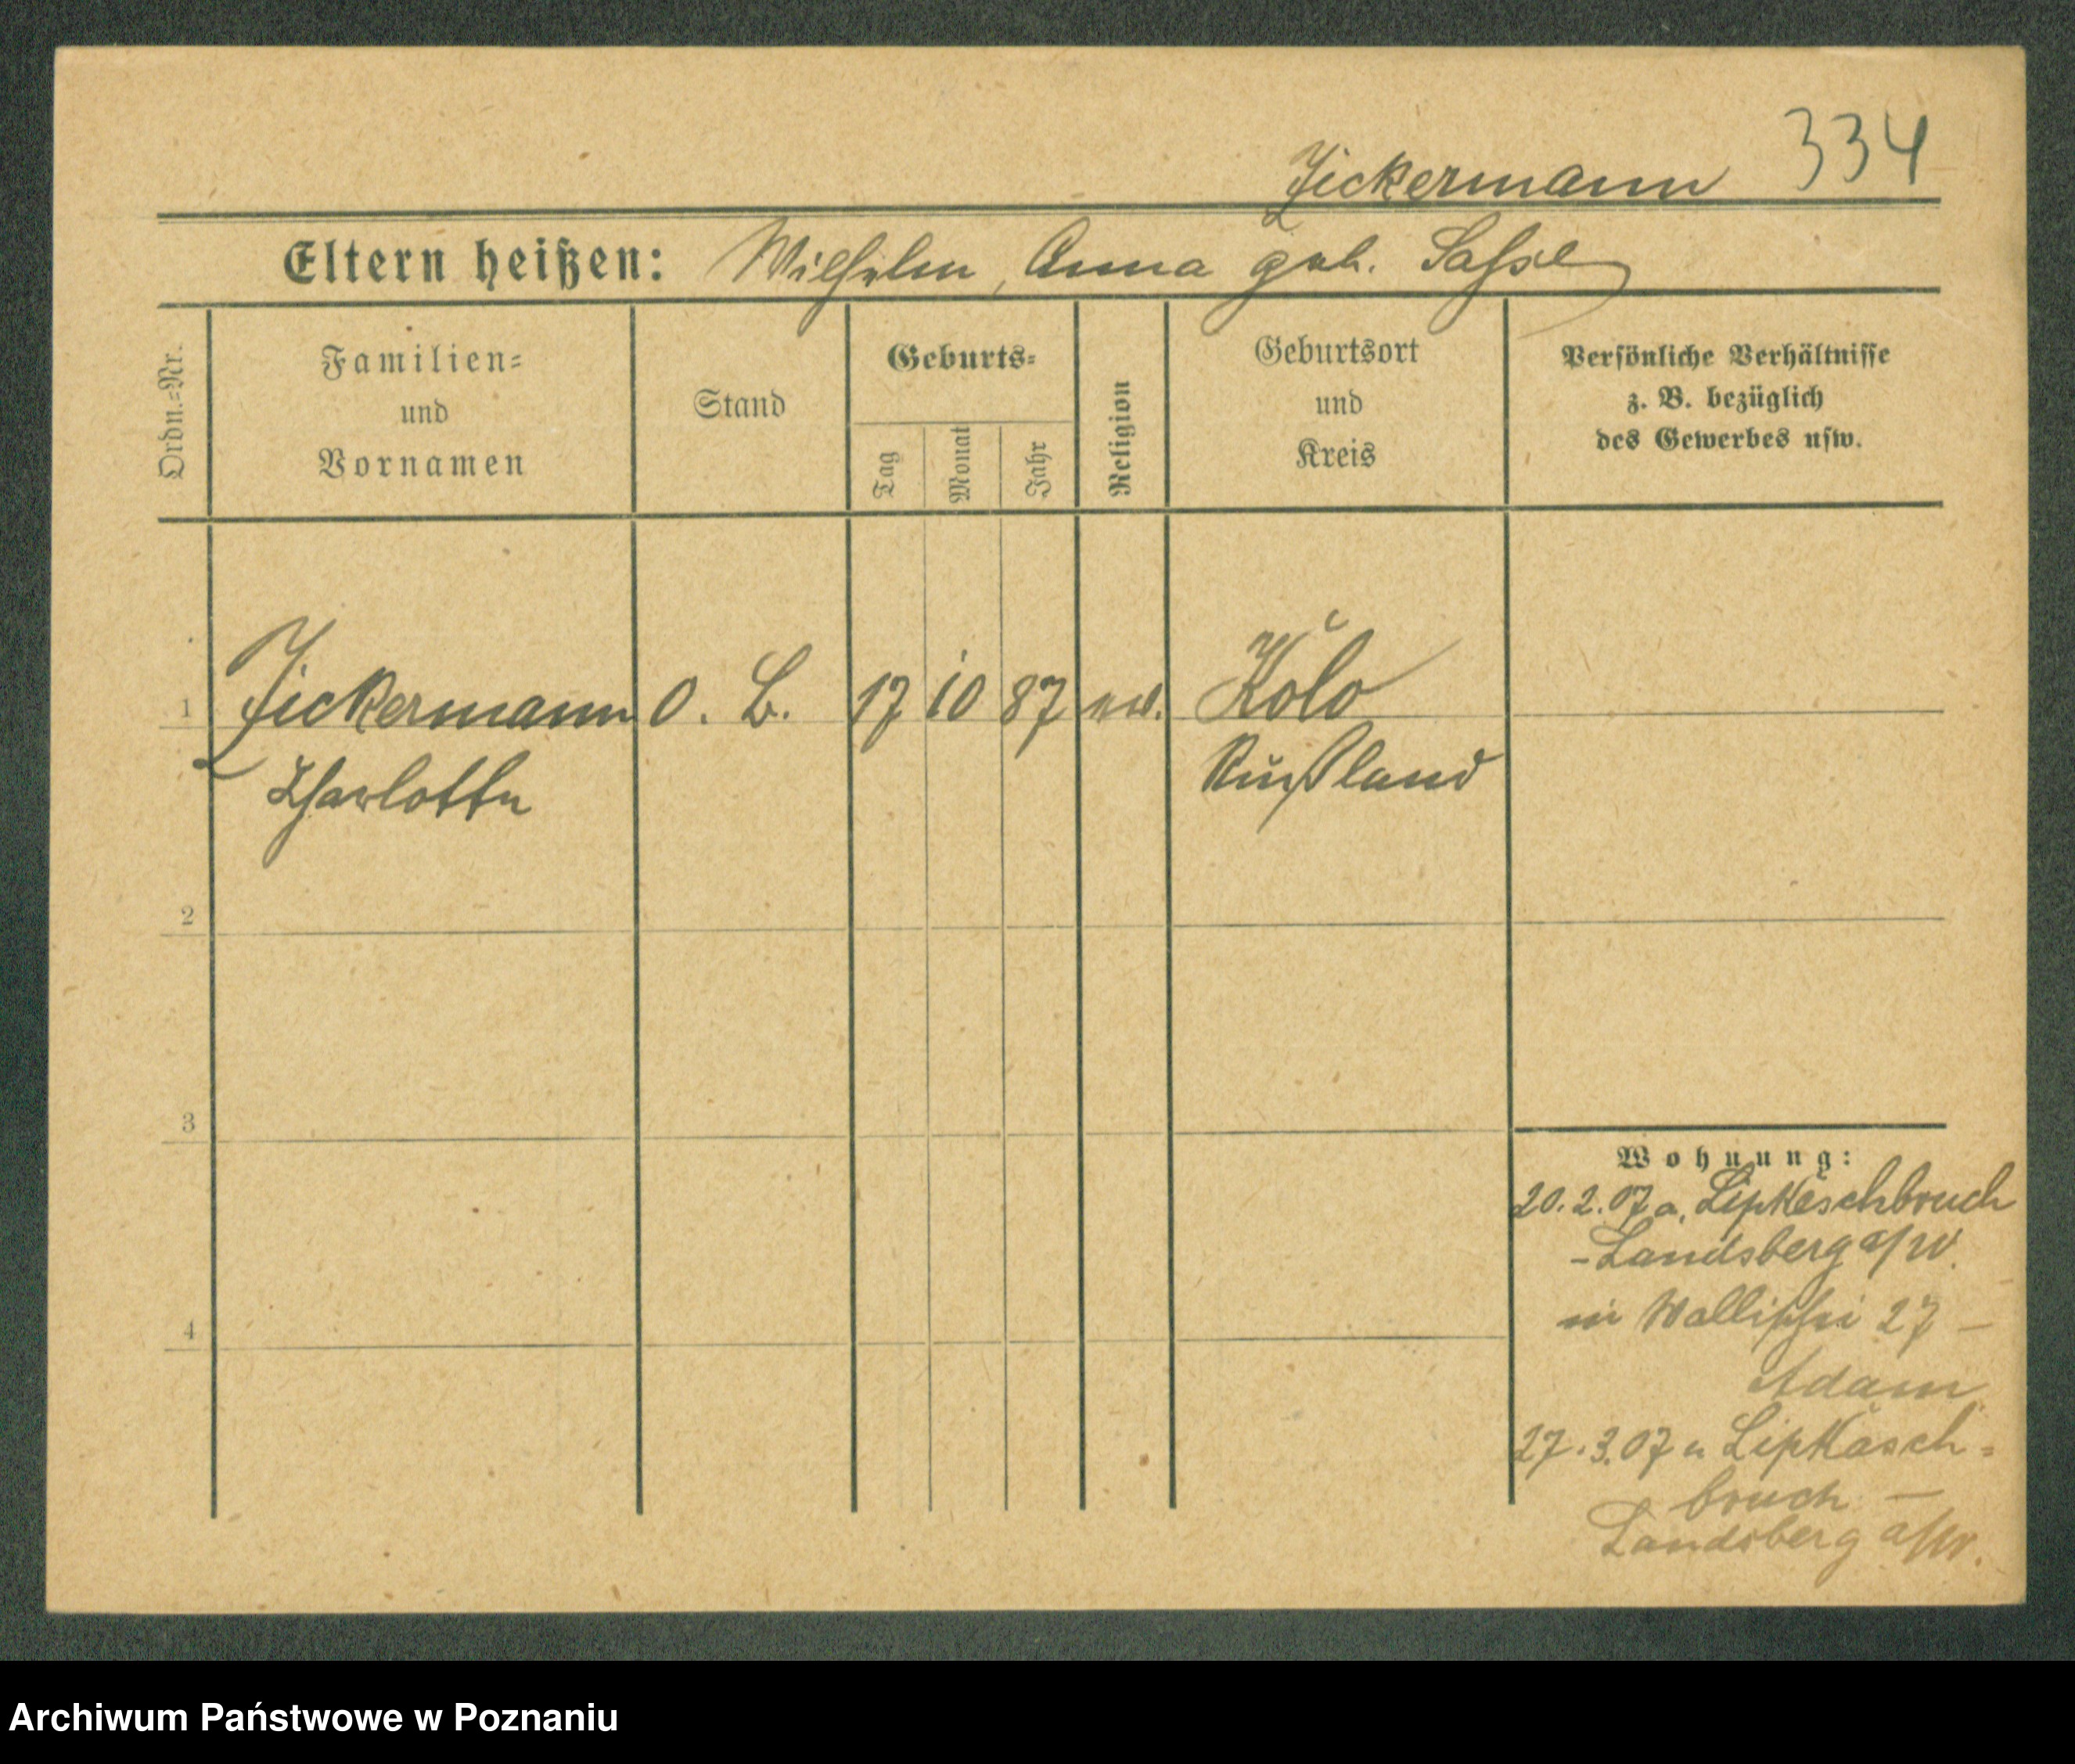 334
Zickermann
Eltern heißen: Wilhelm, Anna geb. Sasse
Ordn.=Nr.
Familien=
und
Vornamen
Stand
Geburts=
Tag
Monat
Jahr
Religion
Geburtsort
und
Kreis
Persönliche Verhältnisse
z. B. bezüglich
des Gewerbes usw.
1 Zickermann O. B. 17 10 87 ev. Kolo
Charlotte Rußland
2
3
4
Wohnung:
20.2.07 a. Lipkeschbruch
- Landsberg a/W.
in Wallischei 27 –
Adam
27.3.07 n Lipkäsch=
bruch –
Landsberg a/W.
Archiwum Państwowe w Poznaniu